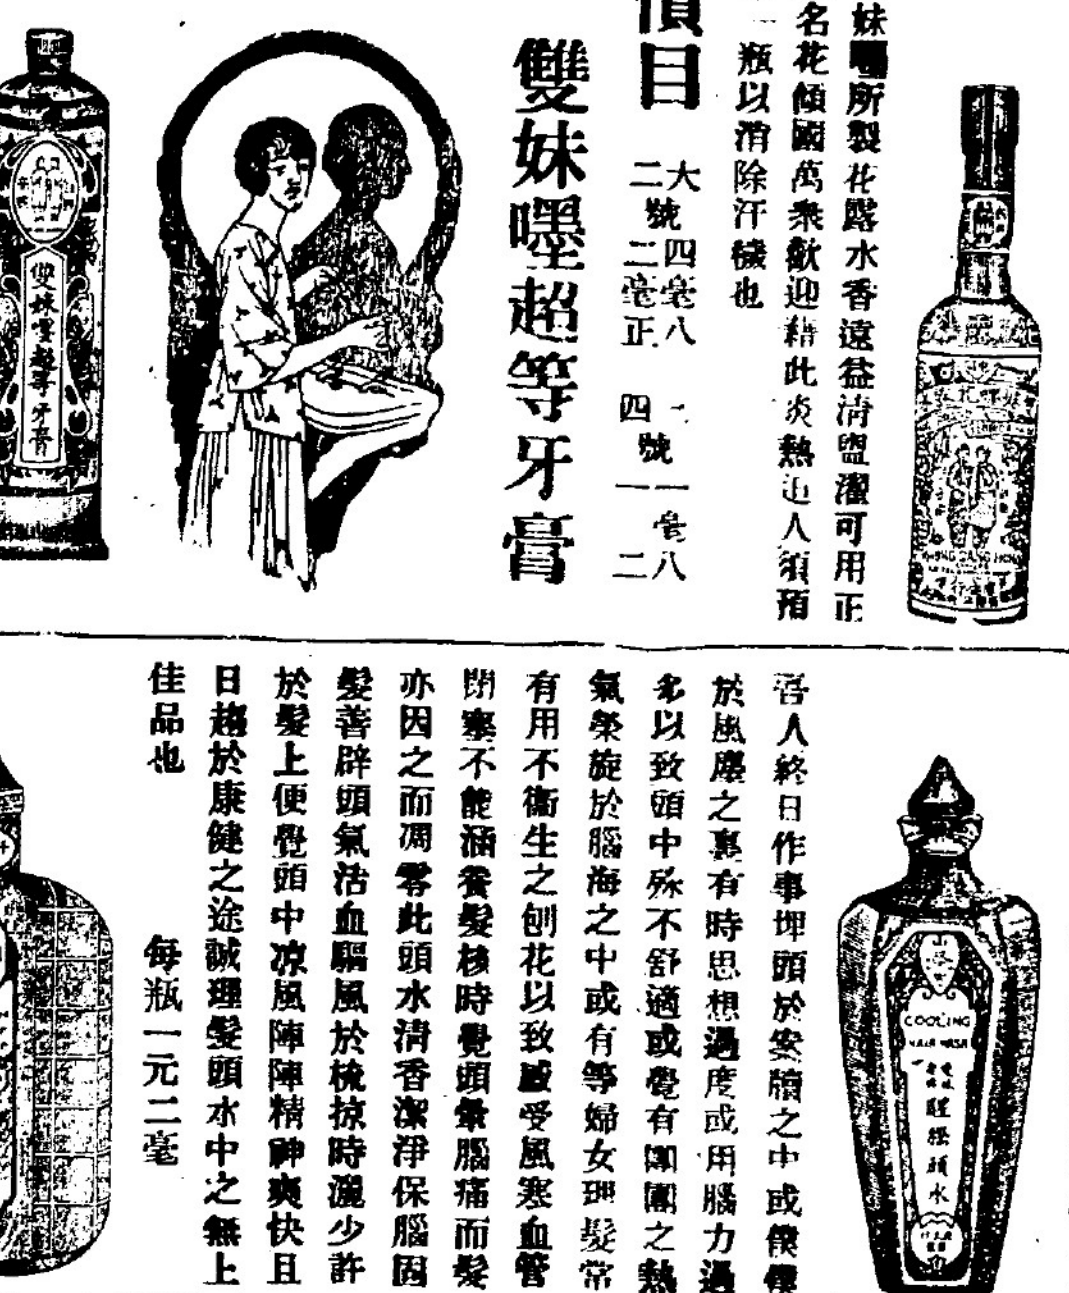 妹嚜所製花露水香遠益清盥濯可用正
名花傾國萬衆歡迎藉此炎熱迫人須預
一瓶以消除汗穢也
價目
大號四毫八
二號二毫正
號一毫八
四號一二
雙妹嚜超等牙膏
雙妹嚜超等牙膏
吾人終日作事埋頭於安牘之中或僕僕
於風塵之裏有時思想過度或用腦力過
多以致頭中殊不舒適或覺有團團之熱
氣縈旋於腦海之中或有等婦女理髮常
有用不衞生之刨花以致感受風寒血管
閉塞不能涵養髮核時覺頭暈腦痛而髮
亦因之而凋零此頭水清香潔淨保腦固
髮善辟頭氣活血驅風於梳掠時灑少許
於髮上便覺頭中凉風陣陣精神爽快且
日趨於康健之途誠理髮頭水中之無上
佳品也
每瓶一元二毫
COOLING
HAIR WASH
雙妹
老牌
醒腦頭水